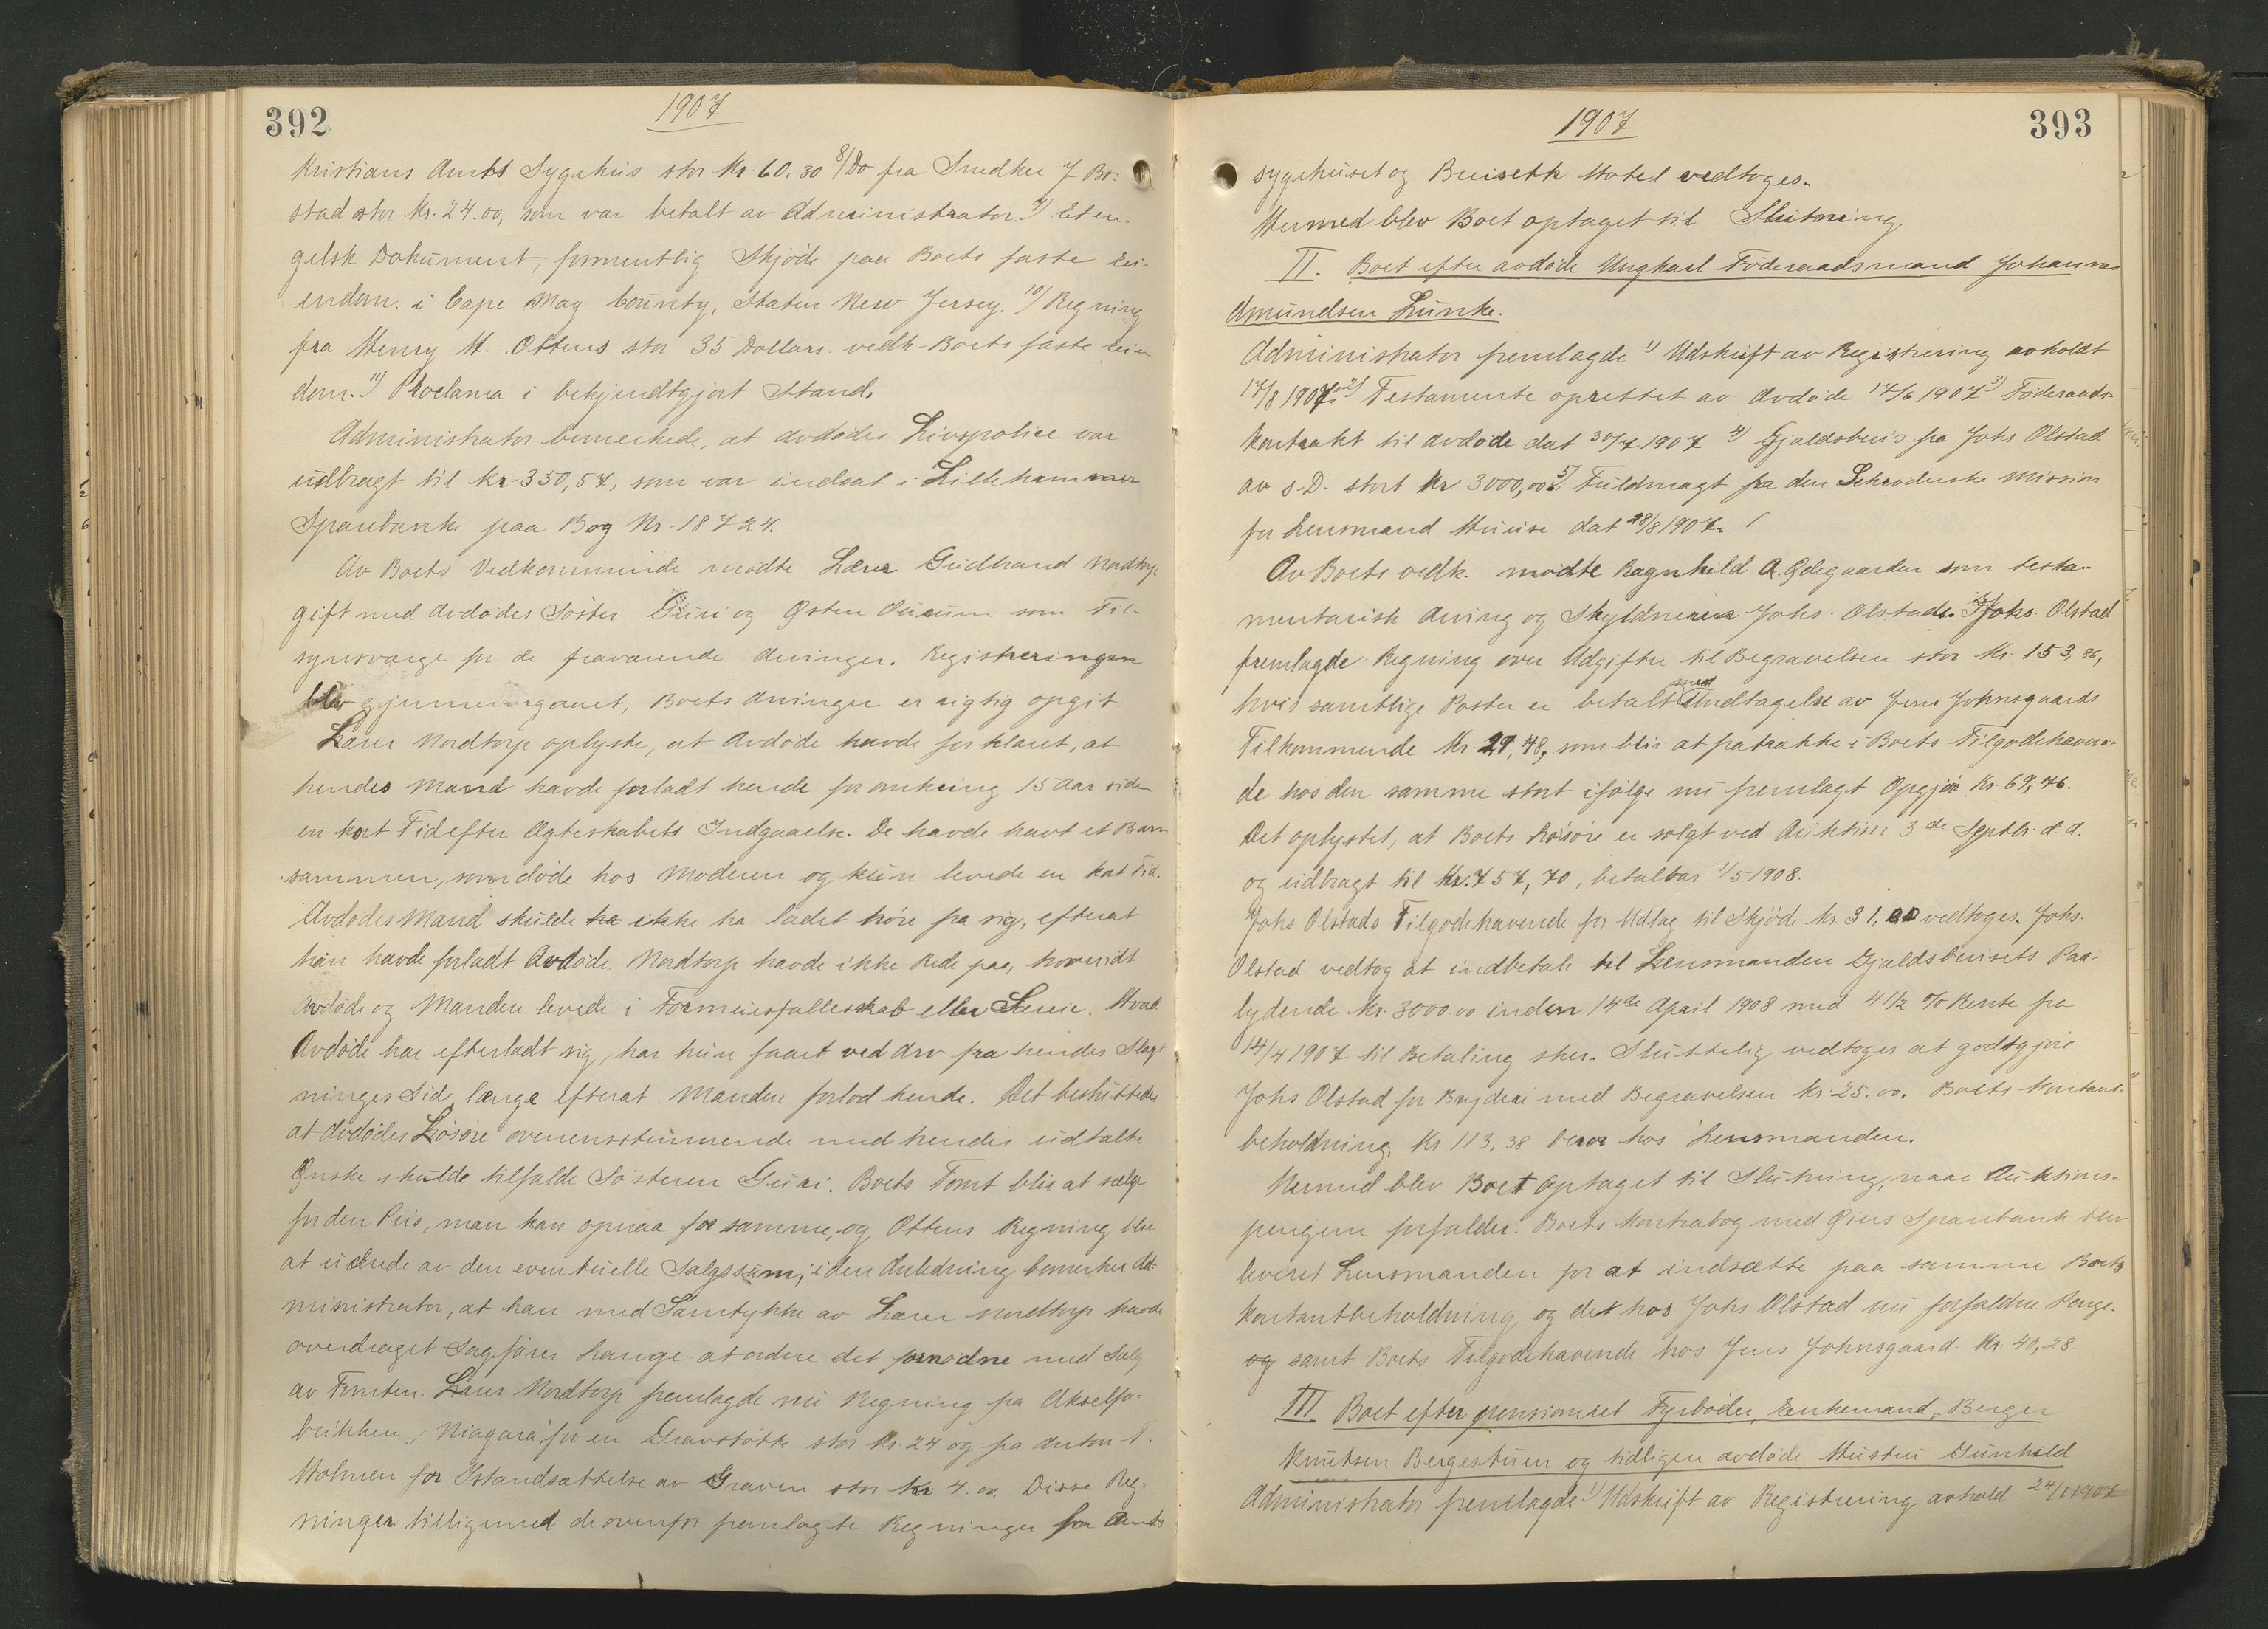 392
1907
Kristians Amts Sygehus stor Kr. 60.30 8/ Do fra Snedker J Bo-
stad stor Kr. 24.00, som var betalt av Administrator. 9) Et en-
gelsk Dokument, formentlig Skjøde paa Boets faste Ei-
endom. i Cape May County, Staten New Jersey. 10) Regning
fra Henry H. Ottens stor 35 Dollars vedk. Boets faste Eien
dom. 11) Proclama i bekjendtgjort Stand.
Administrator bemerkede, at avdødes Livspolice var
udbragt til kr 350,57, som var indsat i Lillehammer
Sparebank paa Bog Nr. 18724.
Av Boets Vedkommende mødte Lærer Gudbrand Nordtorp
gift med avdødes Søster Guri og Østen Aurum som Til-
synsværge for de fraværende Arvinger. Registreringen
blev gjennemgaaet, Boets Arvinger er rigtig opgit.
Lærer Nordtorp oplyste, at Avdøde havde forklaret, at
hendes Mand havde forladt hende for omkring 15 Aar siden
en kort Tid efter Ægteskabets Indgaaelse. De havde havt et Barn
sammen, som døde hos Moderen og kun levede en kort Tid.
Avdødes Mand skulde ha ikke ha ladet høre fra sig, efterat
han havde forladt Avdøde. Nordtorp havde ikke Rede paa, hvorvidt
Avdøde og Manden levede i Formuesfællesskab eller Særeie. Hvad
Avdøde har efterladt sig, har hun faaet ved Arv fra hendes Slægt-
ninges Side, længe efterat Manden forlod hende. Det besluttedes
at Avdødes Løsøre overensstemmende med hendes udtalte
Ønske skulde tilfalde Søsteren Guri. Boets Tomt blir at sælge
for den Pris, man kan opnaa for samme, og Ottens Regning blir
at udrede av den eventuelle Salgssum; i den Anledning bemerker Ad-
ministrator, at han med Samtykke av Lærer Nordtorp havde
overdraget Sagfører Lange at ordne det fornødne med Salg
av Tomten. Lærer Nordtorp fremlagde nu Regning fra Akselfa-
brikken "Niagara" for en Gravstøtte stor Kr. 24 og fra Anton
Holmen for Istandsættelse av Graven stor kr 4.00. Disse Reg-
ninger tilligemed de ovenfor fremlagte Regninger fra Amts
393
1907
sygehuset og Hotel vedtoges.
Hermed blev Boet optaget til Slutning.
II. Boet efter avdøde Ungkarl Føderaadsmand Johannes
Amundsen Lunke.
Administrator fremlagde 1) Udskrift av Registrering avholdt
17/8 1907. 2) Testamente oprettet av Avdøde 17/6 1907 3) Føderaads-
kontrakt til Avdøde dat 30/7 1907 4) Gjældsbevis fra Johs Olstad
av s.D. stort Kr 3000,00. 5) Fuldmagt fra den Schrøderske Mission
for Lensmand Huuse dat 28/8 1907.
Av Boets vedk. mødte Ragnhild A. Ødegaarden som testa-
mentarisk Arving og Skyldneren Johs. Olstad. Johs Olstad
fremlagde Regning over Udgifter til Begravelsen stor Kr. 153,86,
hvis samtlige Poster er betalt med Undtagelse av Jens Johnsgaards
Tilkommende Kr. 29,48, som blir at fratrække i Boets Tilgodehaven-
de hos den samme stort ifølge nu fremlagt Opgjør Kr. 69,76.
Det oplystes, at Boets Løsøre er solgt ved Auktion 3de Septbr. d. A.
og udbragt til Kr. 757,70, betalbar 1/5 1908.
Johs Olstads Tilgodehavende for Udlæg til Skjøde kr. 31,00 vedtoges. Johs.
Olstad vedtog at indbetale til Lensmanden Gjældsbevisets Paa-
lydende Kr. 3000.00 inden 14de April 1908 med 4 1/2 % Rente fra
14/4 1907 til Betaling sker. Sluttelig vedtoges at godtgjøre
Johs Olstad for Bryderi med Begravelsen Kr. 25.00. Boets Kontant-
beholdning Kr 113,38 beror hos Lensmanden.
Hermed blev Boet optaget til Slutning, naar Auktions-
pengene forfalder. Boets Kontrabog med Øiers Sparebank blev
leveret Lensmanden for at indsætte paa samme Boets
Kontantbeholdning, og det hos Johs Olstad nu forfaldne Penge-
og samt Boets Tilgodehavende hos Jens Johnsgaard Kr. 40,28.
III Boet efter pensioneret Fyrbøder, Enkemand, Berger
Knutsen Bergestuen og tidligere avdøde Hustru Gunhild
Administrator fremlagde 1) Udskrift av Registrering avhold